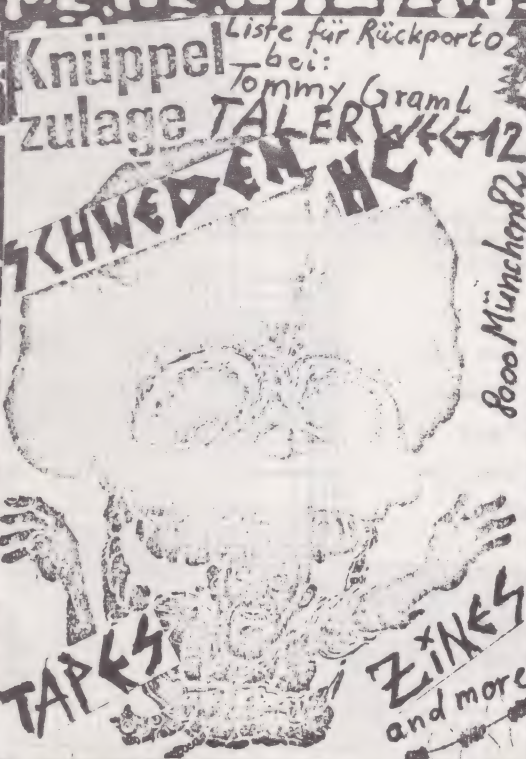 Knüppel
zulage
Liste für Rückporto
bei:
Tommy Graml
TALERWEG 12
8000 München 82
SCHWEDEN HC
TAPES
ZiNES
and more